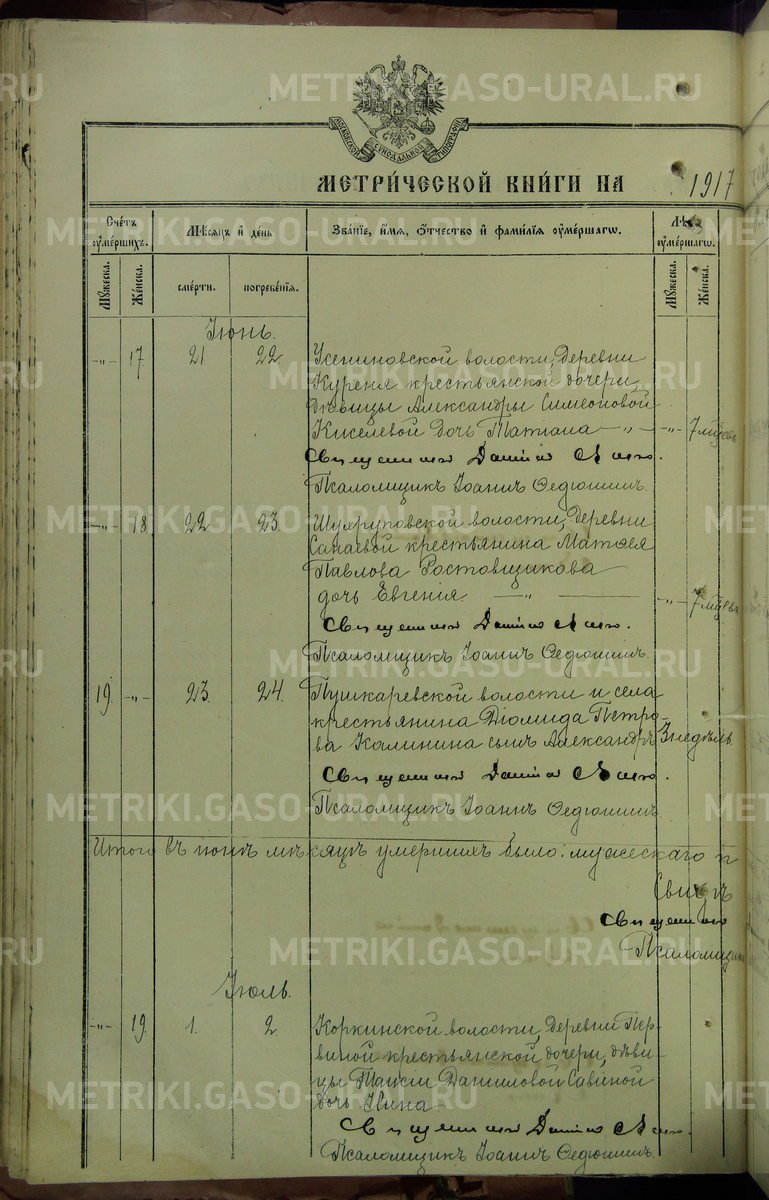 МЕТРИ́ЧЕСКОЙ КНИ́ГИ НА 1917
Сче́тъ оуме́ршихъ.
Мѣ́сяцъ и день
Зва́нїе, и́мя, о́тчество и фами́лїя оуме́ршагѡ.
Лѣ́та оуме́ршагѡ.
Му́жеска.
Же́нска.
сме́рти.
погребе́нїя.
Му́жеска.
Же́нска.
Іюнь.
-"- 17 21 22 Усениновской волости, деревни
Куреня крестьянской дочери,
дѣвицы Александры Симеоновой
Киселевой дочь Татіана -"- -"- 7 мѣсцевъ
Священникъ
Псаломщикъ Іоаннъ Федюшинъ.
-"- 18. 22 23. Шухруповской волости, деревни
Санаевой крестьянина Матѳея
Павлова Ростовщикова
дочь Евгенія. -"- -"- 7 мѣсцевъ
Священникъ
Псаломщикъ Іоаннъ Федюшинъ.
19. -"- 23. 24. Пушкаревской волости и села
крестьянина Діомида Петро-
ва Калинина сынъ Александръ 3 недѣль.
Священникъ
Псаломщикъ Іоаннъ Федюшинъ.
Итого въ іюнѣ мѣсяцѣ умершихъ было: мужескаго п
Священникъ
Псаломщик
Іюль.
-"- 19. 1. 2 Коркинской волости, деревни Пер-
виной крестьянской дочери, дѣви-
цы Таисіи Даниловой Савиной
дочь Нина.
Священникъ
Псаломщикъ Іоаннъ Федюшинъ.
METRIKI.GASO-URAL.RU